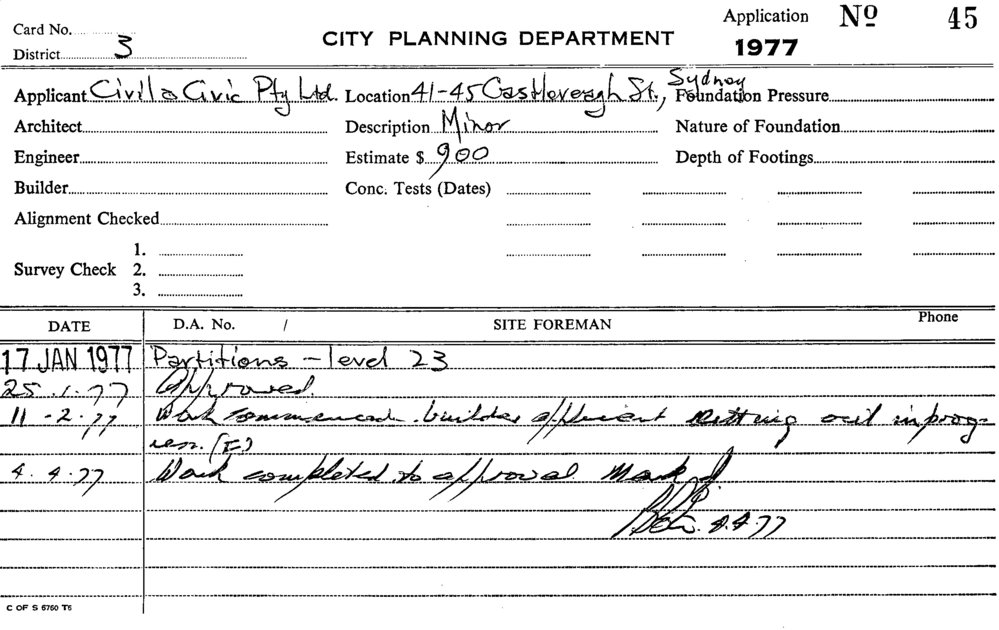 Application Nº 45
Card No.
District 3
CITY PLANNING DEPARTMENT
1977
Applicant Civil & Civic Pty Ltd. Location 41-45 Castlereagh St., Sydney Foundation Pressure
Architect Description Minor Nature of Foundation
Engineer Estimate $ 900 Depth of Footings
Builder Conc. Tests (Dates)
Alignment Checked
Survey Check 1.
2.
3.
DATE D.A. No. / SITE FOREMAN Phone
17 JAN 1977 Partitions - level 23
25.1.77 Approved.
11-2.77 Work commenced. builder applicant setting out in prog-
ress. (I)
4.4.77 Work completed to approval Mark
4.4.77
C OF S 6760 T6